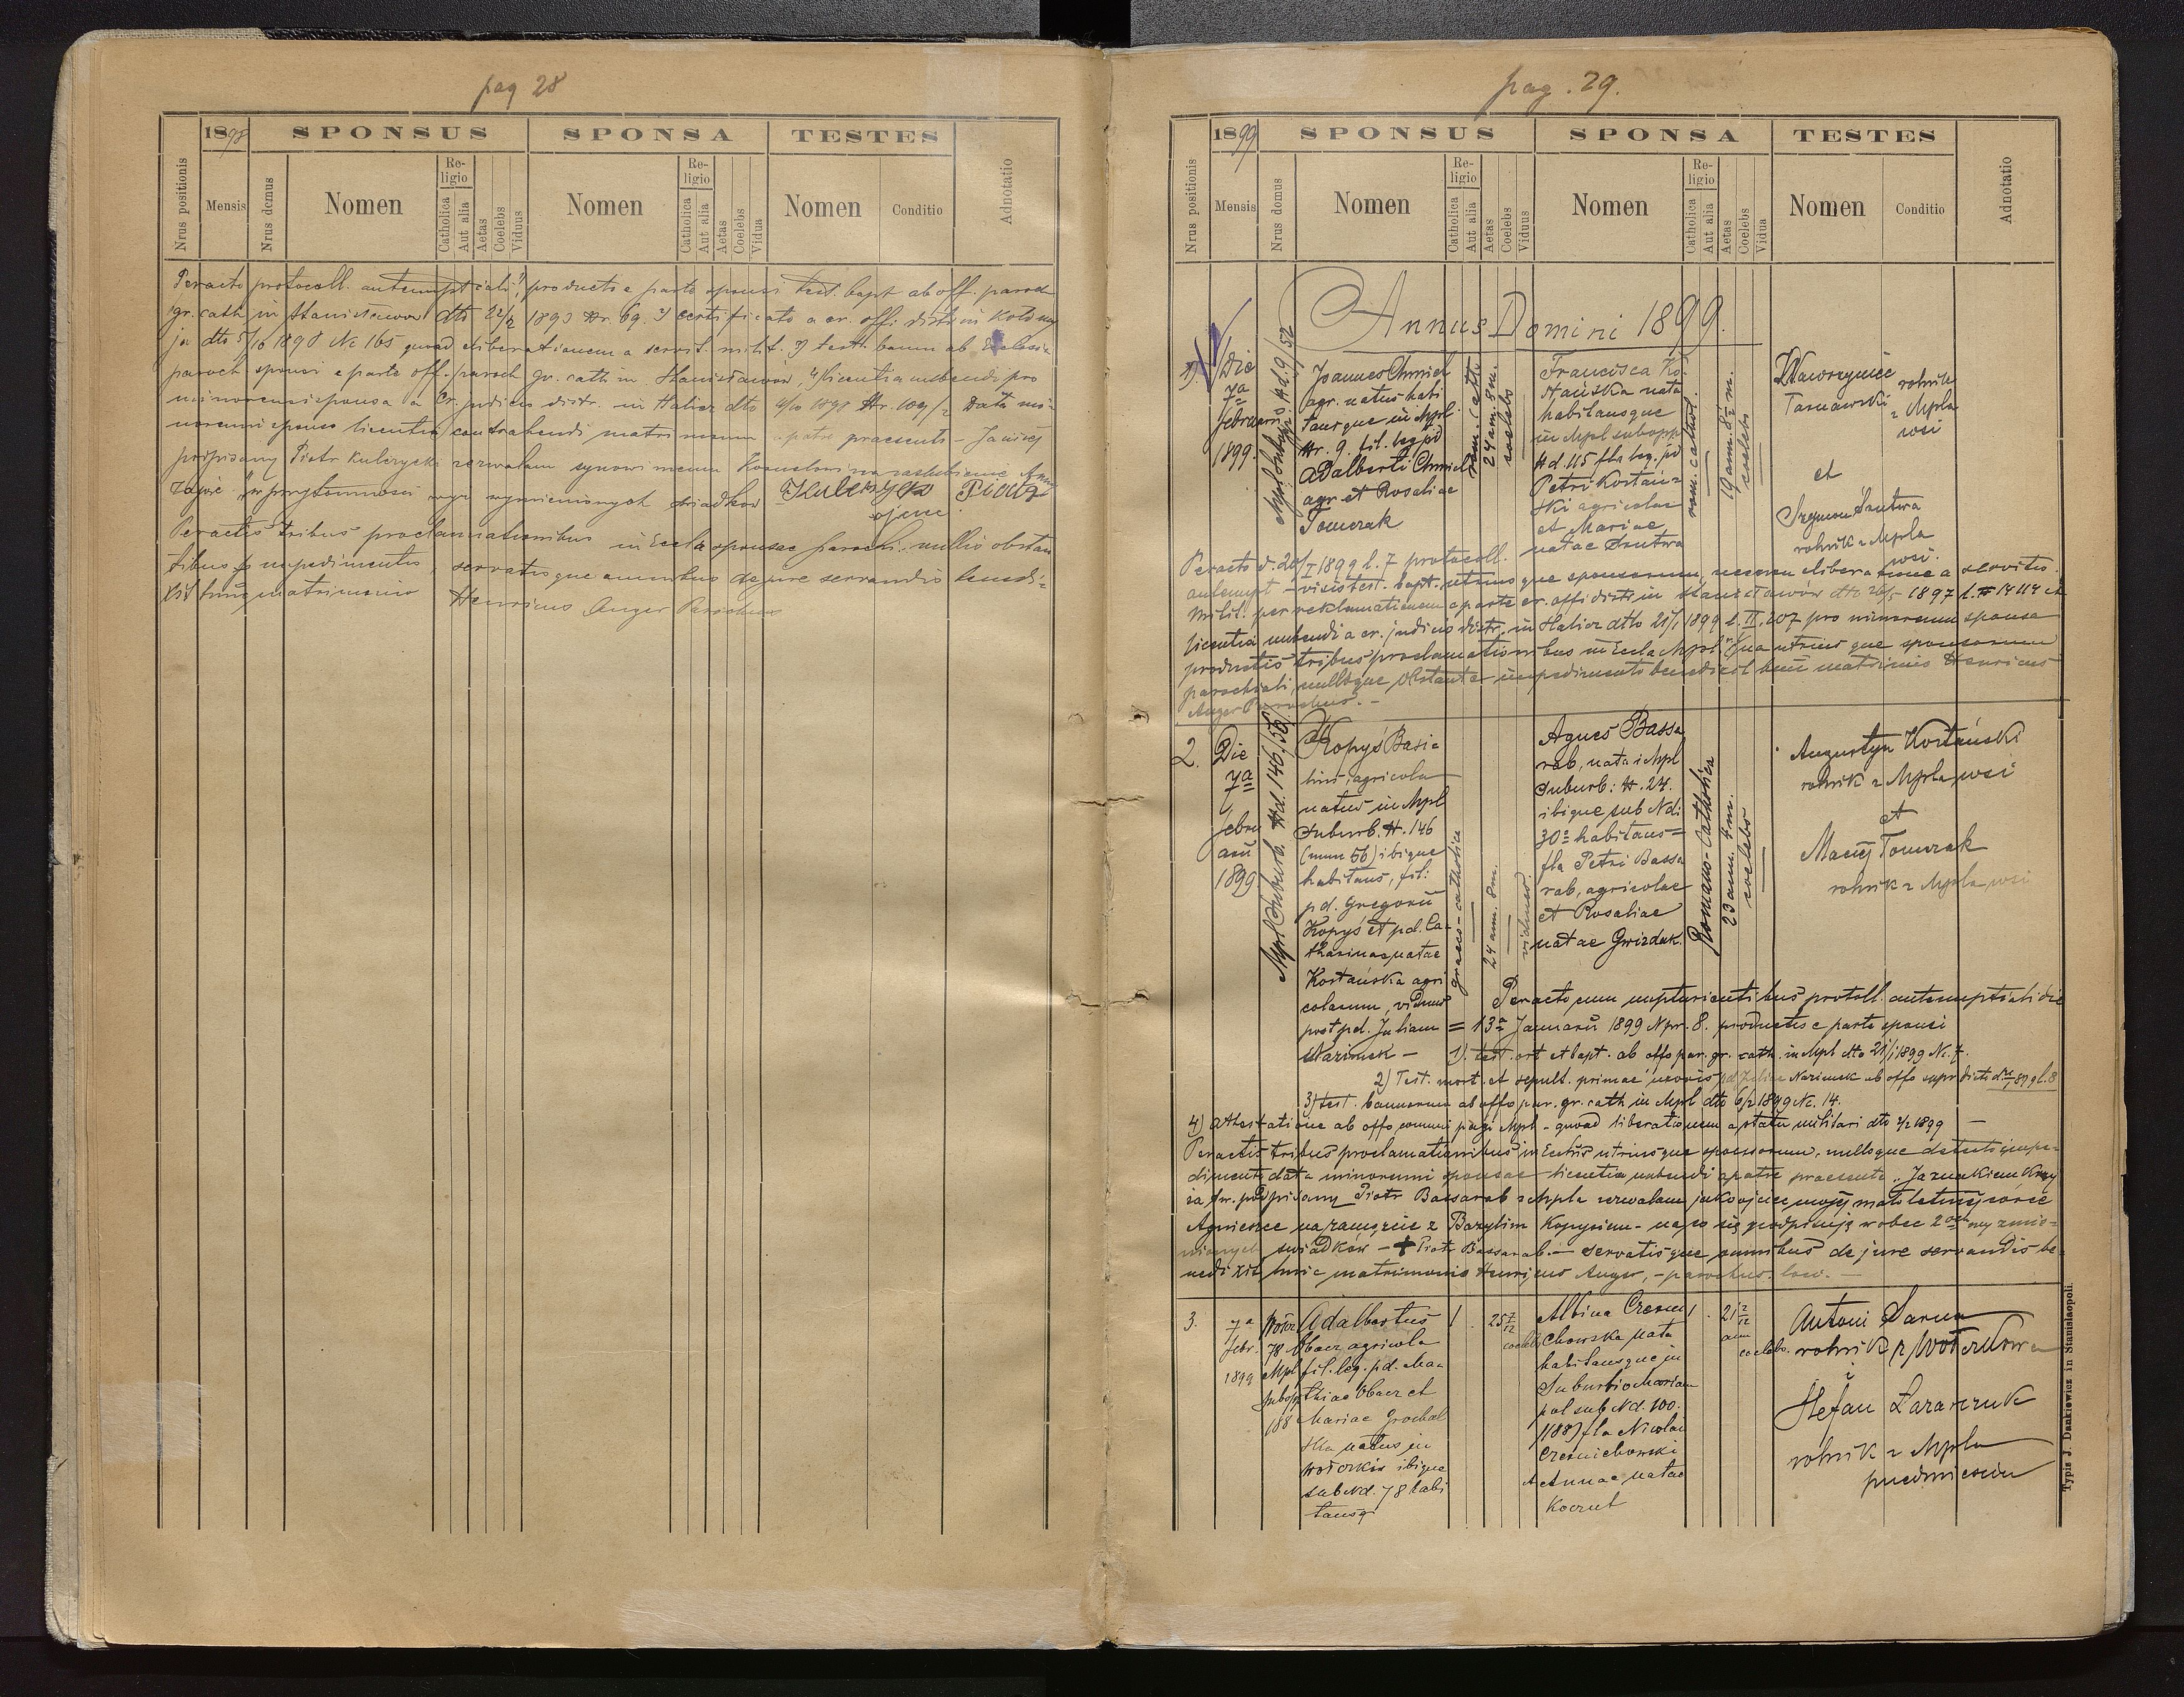 pag 28
1898 SPONSUS SPONSA TESTES
Nrus positionis
Mensis
Nrus domus
Nomen
Religio
Catholica
Aut alia
Aetas
Coelebs
Viduus
Nomen
Religio
Catholica
Aut alia
Aetas
Coelebs
Vidua
Nomen
Conditio
Adnotatio
Peracto protocoll. antenupt productis e parte sponsi test. bapt ab off. paroch
gr. cath in Stanisławów dto 1893 Nr. 69. certificato a
dto 1898 No 165 quoad liberationem a servit. milit. 3) test. bann ab
paroch sponsi e parte off. paroch gr. cath in Stanisławów, 4) licentia nubendi pro
sponsa a Cr. judicio distr. in Halicz dto 1898 Nr. 109/2 Data
sponso licentia contrahendi matrimonium a patre praesenti - Ja niżej
podpisany Piotr Kulczycki zezwalam synowi memu na zaślubienie Anny
Zając w przytomności wyż wymienionych świadków Piotr
ojciec
Peractis tribus proclamationibus in Eccla sponsae paroch. nullis obstan
tibus impedimentis, servatisque omnibus de jure servandis benedi=
xit huic matrimonio Henricus Anger Parochus
pag. 29.
1899 SPONSUS SPONSA TESTES
Nrus positionis
Mensis
Nrus domus
Nomen
Religio
Catholica
Aut alia
Aetas
Coelebs
Viduus
Nomen
Religio
Catholica
Aut alia
Aetas
Coelebs
Vidua
Nomen
Conditio
Adnotatio
Annus Domini 1899.
1)
Die
7a
februarii
1899.
Joannes Chmiel
agr. natus habi
tansque in Mpl.
Nr. 9. fil. leg pd
Adalberti Chmiel
agr et Rosaliae
Tomczak
rom. cath
24 ann. 8 m.
coelebs
Francisca Ko
stańska nata
habitansque
in Mpl subopp
Nd. 115 fla leg. pd
Petri Kostań=
ski agricolae
et Mariae
natae Szutwa
rom. cathol.
19 ann. 8½ m.
coelebs
Wawrzyniec
Tarnawski
rolnik
z Mpla
wsi
et
Szymon Szutwa
rolnik z Mpla
wsi.
Peracto d. 20/I 1899 l. 7 protocoll.
antenupt - visis test. bapt. utriusque sponsorum, necnon liberatione a servitio
milit. per reklamationem a parte cr. offi distr. in Stanisławów dto 1897 l. 14114 et
licentia nubendi a cr. judicio distr. in Halicz dtto 21/1 1899 l. II. 207 pro minorenni sponsa
productis tribus proclamationibus in Eccla Mpol qua utriusque sponsorum
parochiali, nulloque obstante impedimento benedixit huic matrimonio Henricus
Anger Parochus. -
2.
Die
7a
febru
arii
1899
Mpl Suburb. Nd. 146/56
Kopyś Basi=
lius, agricola
natus in Mpl
Suburb. N. 146
(nunc 56) ibique
habitans, fil:
pd. Gregorii
Kopyś et pd. Ca-
tharinae natae
Kostańska agri
colarum, viduus
post pd. Juliam
Nazimek -
graeco-catholica
24 ann. 8 m.
viduus.
Agnes Bassa
rab, nata i Mpl
Suburb: N. 24.
ibique sub Nd.
30= habitans=
fla Petri Bassa
rab, agricolae
et Rosaliae
natae Gwizdak.
Romano-Catholica
23 ann. 4 m.
coelebs
Augustyn Kostański
rolnik z Mpla, wsi
et
Maciej Tomczak
rolnik z Mpla, wsi
Peracto cum nupturientibus protoll. antenuptiali die
= 13a Januarii 1899 Npr. 8. productis e parte sponsi
1). test. ort et bapt. ab offo par. gr. cath. in Mpl dto 21/1 1899 No. 7.
2) Test. mort. et sepult. primae uxoris pd Juliae Nazimek ab offo supr dicti l. 8
3) test. bannorum ab offo par. gr. cath in Mpl dto 6/2 1899 No. 14.
4) Attestatione ab offo communi pagi Mpl - quoad liberationem a statu militari dto 2/2 1899 -
Peractis tribus proclamationibus in Ecclis utriusque sponsorum, nulloque detecto impe=
dimento data minorenni sponsae licentia nubendi a patre praesente. Ja znakiem Krzy
ża św. podpisany Piotr Bassarab z Mpla zezwalam jako ojciec mojej małoletniej córce
Agnieszce na zamęście z Bazylim Kopysiem - na co się podpisuję wobec 2och wymie=
nionych świadków - + Piotr Bassarab. - servatisque omnibus de jure servandis be=
nedixit huic matrimonio Henricus Anger, - parochus. loco. -
3.
7a
febr.
1899
78
Mpl
subopp
188
Adalbertus
Obacz agricola
fil. leg. pd. Ma=
thiae Obacz et
Mariae Grochol
ska natus in
Wołczków ibique
sub Nd. 78 habi
tansq
1
25 7/12
coelebs
Albina Czerni
chowska nata
habitansque in
Suburbio Mariam
pol sub Nd. 100.
/188/ fla Nicolai
Czernichowski
et Annae natae
Koczut
1
21 2/12
ann
coelebs.
Antoni Sarna
rolnik z Wołczkowa
Stefan Łazarczuk
rolnik z Mpla
przedmieścia
Typis J. Dankiewicz in Stanislaopoli.